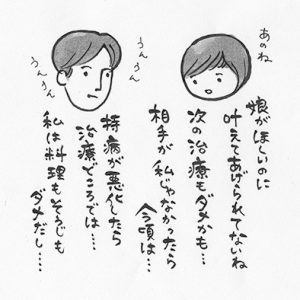 あのね
娘がほしいのに
叶えてあげられてないね
次の治療もダメかも…
相手が私じゃなかったら
今頃は…
うんうん
うんうん
持病が悪化したら
治療どころでは…
私は料理もそうじも
ダメだし…